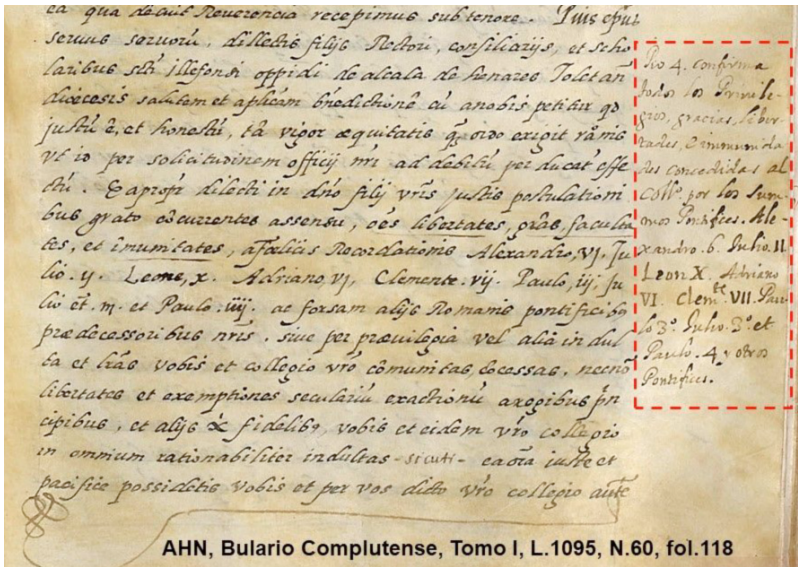 ea qua decuit Reverencia recepimus sub tenore. Pius epūs
servus servorū, dillectis filijs Rectori, consiliarijs, et scho
laribus scti illefonsi oppidi de alcala de henares Toletan
diœcesis salutem et aplicam bnedictionē cū anobis petitur qd
justū ē, et honestū, tā vigor æquitatis q̄ ordo exigit
vt id per solicitudinem officij mri ad debitū per ducat effe
ctū. Eapropr dilecti in dno filij vris justis postulationi
bus grato cōcurrentes assensu, oēs libertates, grās, faculta
tes, et imunitates, afælicis Recordationis Alexandro, VI, Ju
lio. ij. Leone, x. Adriano, vj, Clemente. vij. Paulo, iij, Ju
lio et. m. et Paulo. iiij. ac forsam alijs Romanis pontificibq
prædecessoribus nris, sive per prævilegia vel alia in dul
ta et lrās vobis et collegio vro cōmunitas, docessas, necnō
libertates et exemptiones seculariū exactionū aregibus pn
cipibus, et alijs fidelibq, vobis et eidem vro collegio
in omnium rationabiliter indultas - sicuti - ea oīa iuste et
pacifice possidetis vobis et per vos dicto vro collegio
Pio 4. confirma
todos los Privile-
gios, gracias, liber-
tades, e immunida
des concedidas al
Coll.º por los Sum-
mos Pontifices. Ale-
xandro. 6. Julio. II
Leon X. Adriano
VI. Clem.te VII. Pau-
lo 3.º Julio. 3.º et
Paulo. 4 y otros
Pontifices.
AHN, Bulario Complutense, Tomo I, L.1095, N.60, fol.118